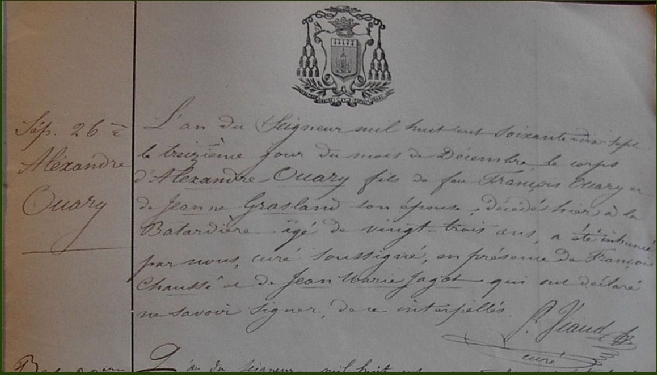 Sép. 26e
Alexandre
Ouary
L'an du Seigneur mil huit cent soixante dix sept
le treizième jour du mois de Décembre le corps
d'Alexandre Ouary fils de feu François Ouary et
de Jeanne Grasland son épouse, décédé hier à la
Batardière âgé de vingt trois ans, a été inhumé
par nous, curé soussigné, en présence de François
Chaussé et de Jean Marie Jagot qui ont déclaré
ne savoir signer, de ce interpellés.
curé
L'an du Seigneur mil huit